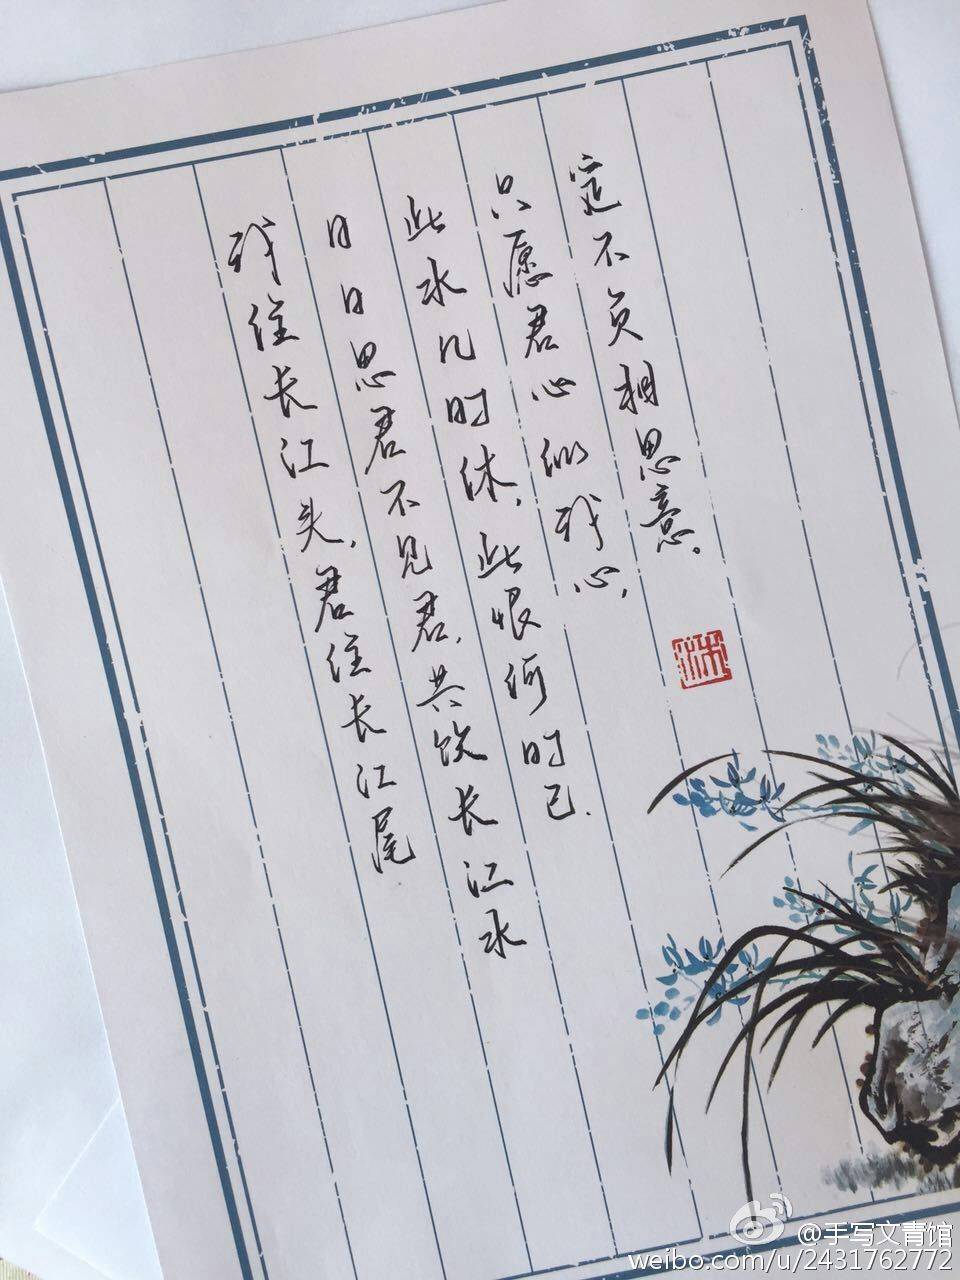 我住长江头，君住长江尾
日日思君不见君，共饮长江水
此水几时休，此恨何时已.
只愿君心似我心，
定不负相思意。
@手写文青馆
weibo.com/u/2431762772